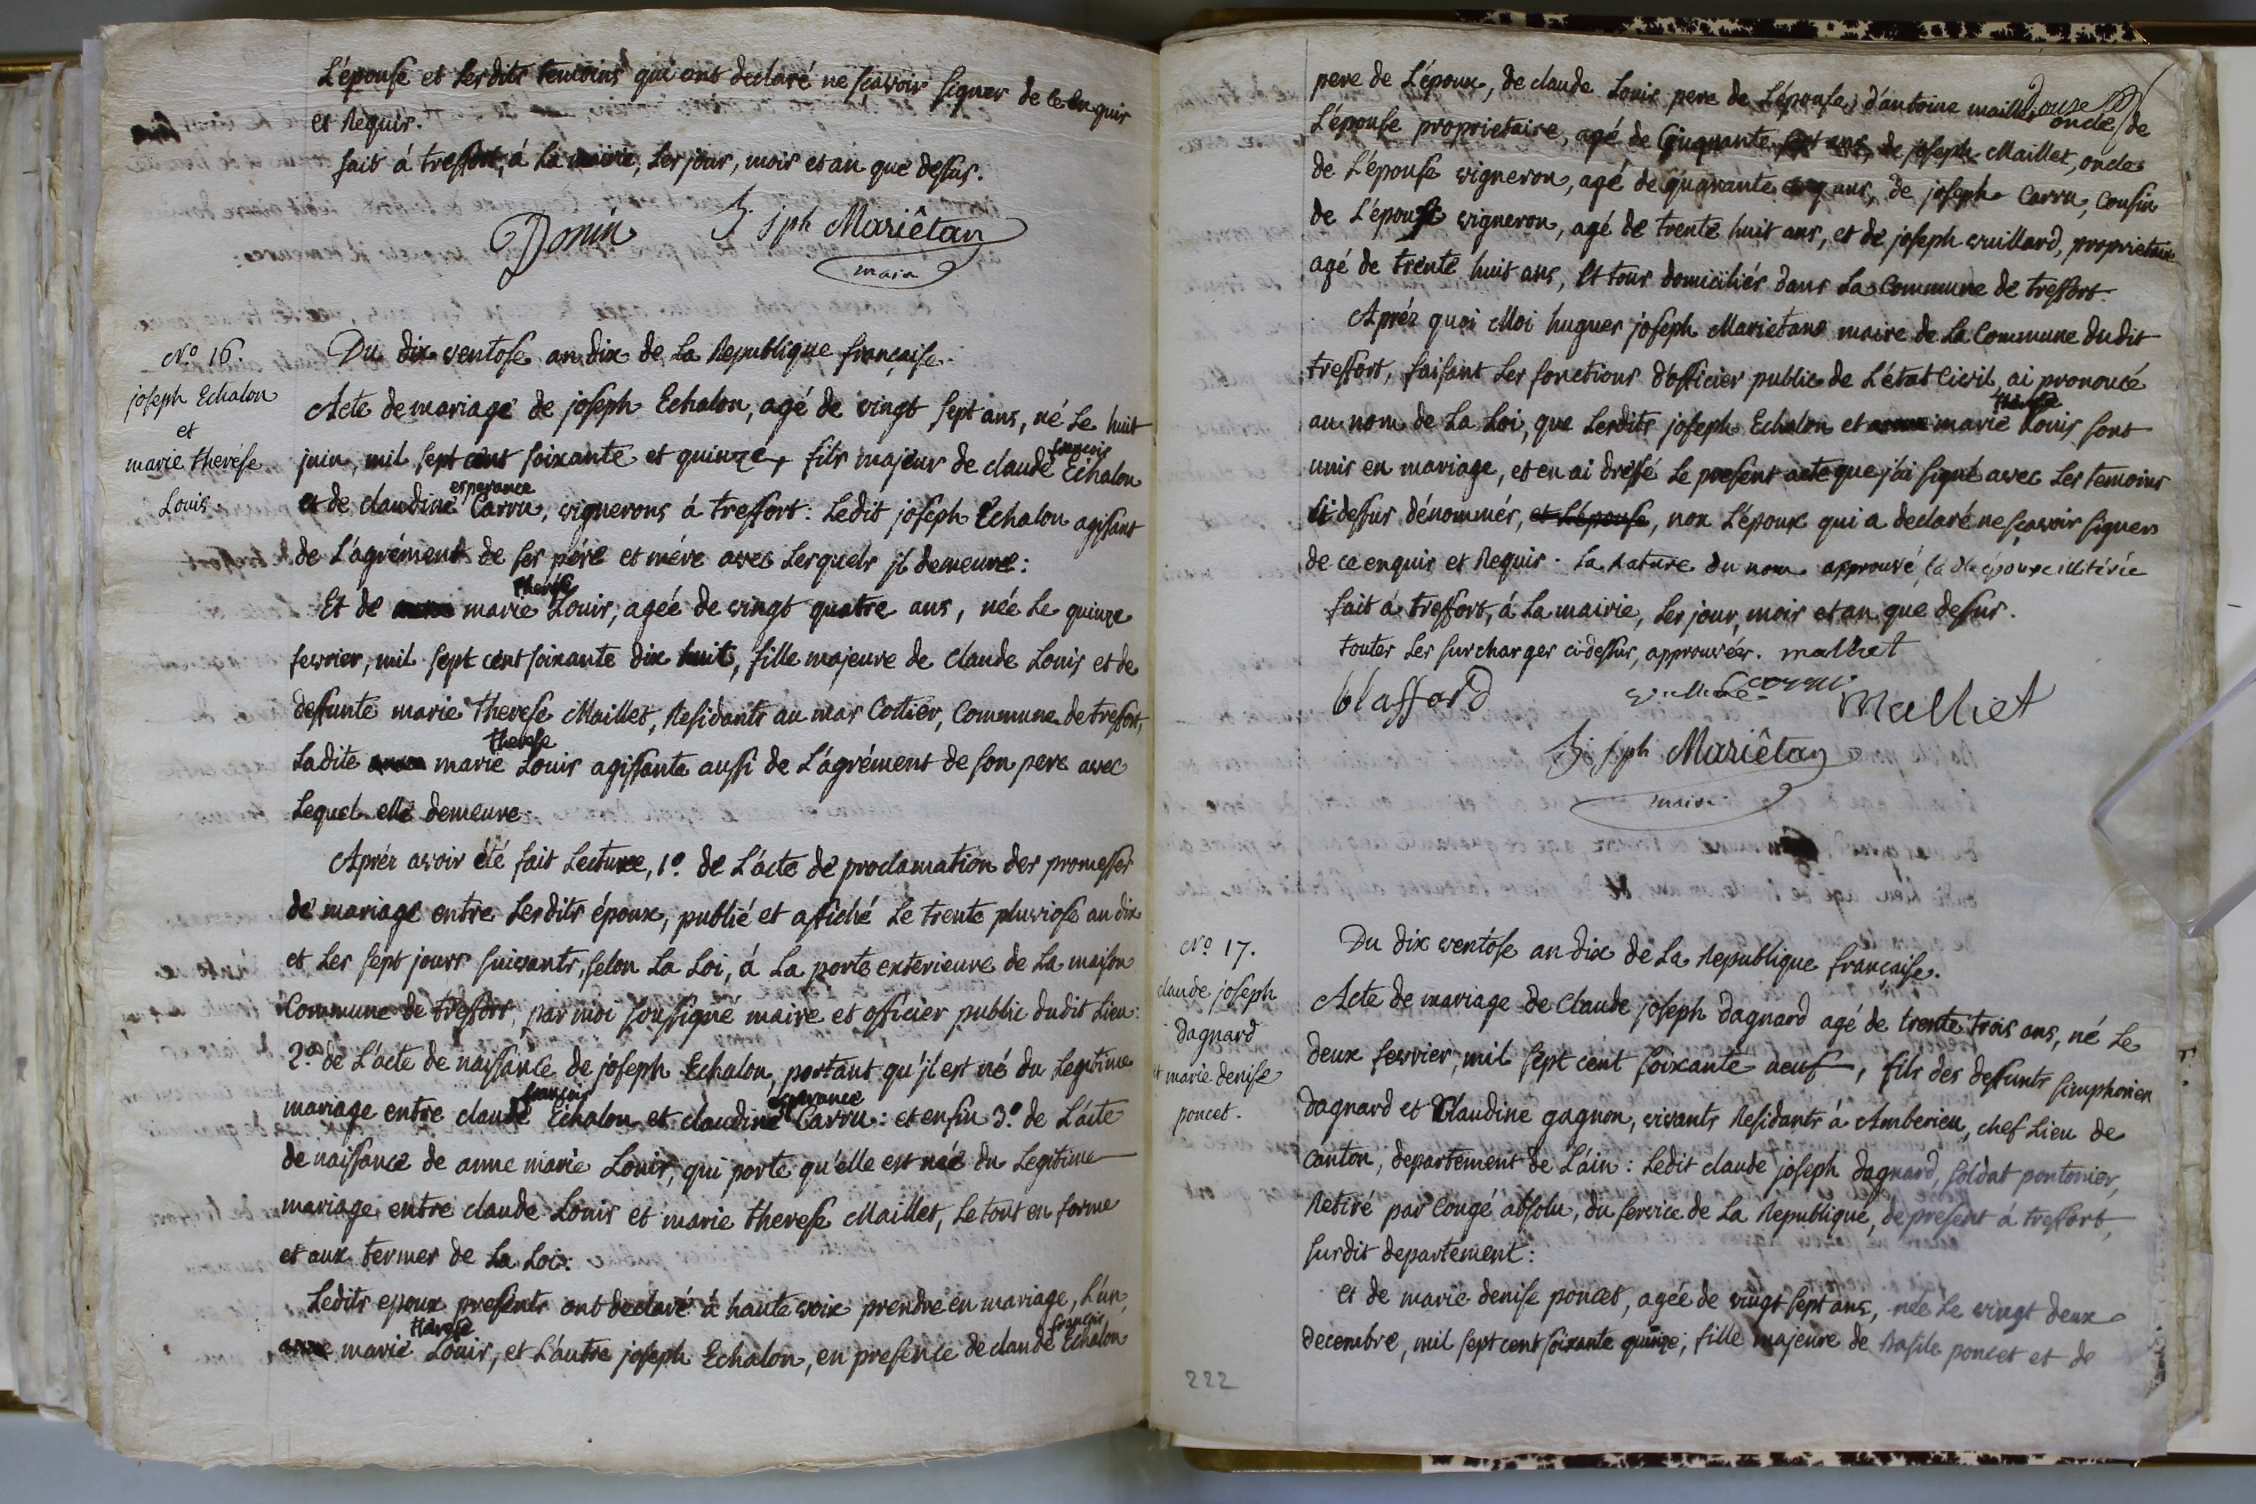 L'épouse et lesdits temoins qui ont declaré ne sçavoir signer de ce enquis
et Requis.
fait á treffort, á la mairie, les jour, mois et an que dessus.
Donin h. jph Mariêtan
maire
Nº 16.
joseph Echalon
et
marie therése
Louis
Du dix ventose an dix de la Republique française.
Acte de mariage de joseph Echalon, agé de vingt sept ans, né le huit
juin, mil sept cent soixante et quinze, fils majeur de claude françois Echalon
et de claudine esperance Carru, vignerons á treffort: Ledit joseph Echalon agissant
de L'agrément de ses pére et mére avec lesquels jl demeure:
Et de marie Thérése Louis, agée de vingt quatre ans, née le quinze
fevrier, mil sept cent soixante dix huit, fille majeure de claude Louis et de
deffunte marie Therese Maillet, Residants au mas Cottier, Commune de treffort,
Ladite marie therese Louis agissante aussi de L'agrément de son pere avec
Lequel elle demeure.
Aprés avoir été fait Lecture, 1º. de L'acte de proclamation des promesses
de mariage entre lesdits époux, publié et affiché le trente pluviose an dix
et les sept jours suivants, selon la Loi, á la porte exterieure de la maison
Commune de treffort, par moi soussigné maire et officier public dudit Lieu:
2º. de L'acte de naissance de joseph Echalon, portant qu'jl est né du Legitime
mariage entre claude françois Echalon et claudine esperance Carru: et enfin 3º. de L'acte
de naissance de anne marie Louis, qui porte qu'elle est née du Legitime
mariage entre claude Louis et marie therese Maillet, le tout en forme
et aux termes de la Loi:
Ledits epoux presents ont declaré á haute voix prendre en mariage, L'un,
anne marie therese Louis, et L'autre joseph Echalon, en presence de claude françois Echalon
pere de L'époux, de claude Louis pere de L'épouse, d'antoine maillet oncle de
L'épouse proprietaire, agé de Cinquante douze ans, de joseph Maillet, oncle
de L'épouse vigneron, agé de quarante cinq ans, de joseph Carru, Cousin
de L'épouse vigneron, agé de trente huit ans, et de joseph vuillard, proprietaire
agé de trente huit ans, et tous domiciliés dans la Commune de treffort.
Aprés quoi Moi hugues joseph Marietan maire de la Commune dudit
treffort, faisant les fonctions d'officier public de L'état Civil, ai prononcé
au nom de la Loi, que lesdits joseph Echalon et marie therese Louis sont
unis en mariage, et en ai dréssé le present acte que j'ai signé avec les temoins
Ci dessus dénommés, et L'épouse, non L'époux qui a declaré ne sçavoir signer
de ce enquis et Requis. La rature du nom approuvé
fait á treffort, á la mairie, les jour, mois et an que dessus.
toutes les surcharges ci-dessus, approuvées. malliet
blaffard Carru Malliet
h. jph Mariêtan
maire
Nº 17.
claude joseph
dagnard
et marie denise
poncet.
Du dix ventose an dix de la Republique française.
Acte de mariage de Claude joseph dagnard agé de trente trois ans, né le
deux fevrier, mil sept cent soixante neuf, fils des deffunts simphorien
dagnard et Claudine gagnon, vivants Residants á Amberieu, chef Lieu de
canton, departement de L'ain: Ledit claude joseph dagnard, soldat pontonier,
Retiré par Congé absolu, du service de la Republique, de present á treffort,
susdit departement:
Et de marie denise poncet, agée de vingt sept ans, née le vingt deux
decembre, mil sept cent soixante quinze, fille majeure de Basile poncet et de
222